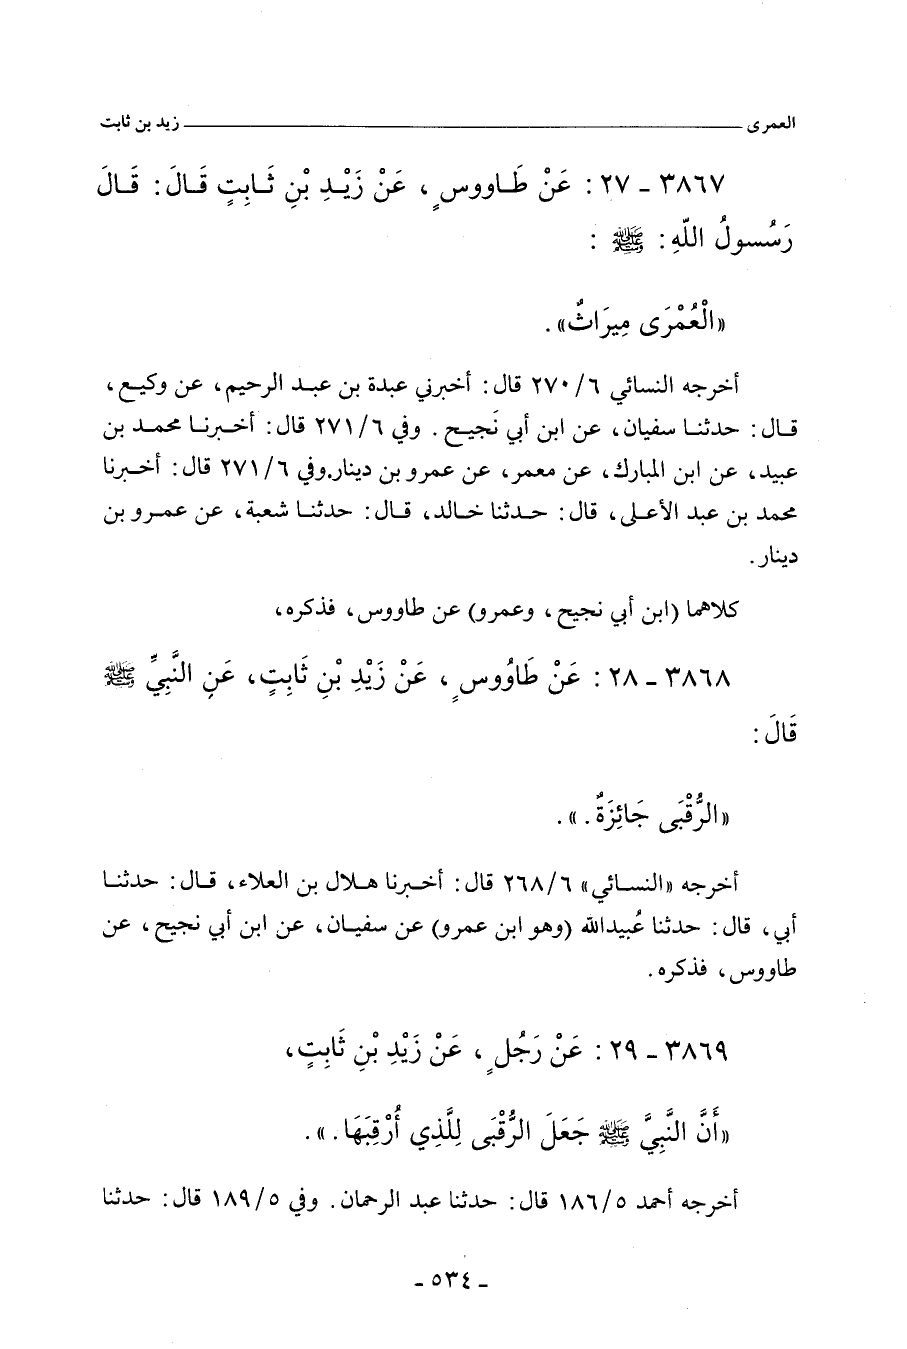 العمرى ــــــــــــــــــ زيد بن ثابت
٣٨٦٧ - ٢٧ : عَنْ طَاووسٍ ، عَنْ زَيْدِ بْنِ ثَابِتٍ قَالَ : قَالَ
رَسُولُ اللّهِ : ﷺ :
«الْعُمْرَى مِيرَاثٌ» .
أخرجه النسائي ٦/٢٧٠ قال : أخبرني عبدة بن عبد الرحيم ، عن وكيع ،
قال : حدثنا سفيان ، عن ابن أبي نَجيح . وفي ٦/٢٧١ قال : أخبرنا محمد بن
عبيد ، عن ابن المبارك ، عن معمر ، عن عمرو بن دينار.وفي ٦/٢٧١ قال : أخبرنا
محمد بن عبد الأعلى ، قال : حدثنا خالد ، قال : حدثنا شعبة ، عن عمرو بن
دينار .
كلاهما (ابن أبي نجيح ، وعمرو) عن طاووس ، فذكره ،
٣٨٦٨ - ٢٨ : عَنْ طَاوُوسٍ ، عَنْ زَيْدِ بْنِ ثَابِتٍ ، عَنِ النَّبِيِّ ﷺ
قَالَ :
«الرُّقْبَى جَائِزَةٌ . » .
أخرجه «النسائي» ٦/٢٦٨ قال : أخبرنا هلال بن العلاء ، قال : حدثنا
أبي ، قال : حدثنا عُبيدالله (وهو ابن عمرو) عن سفيان ، عن ابن أبي نجيح ، عن
طاووس ، فذكره .
٣٨٦٩ - ٢٩ : عَنْ رَجُلٍ ، عَنْ زَيْدِ بْنِ ثَابِتٍ ،
«أَنَّ النَّبِيَّ ﷺ جَعَلَ الرُّقْبَى لِلَّذِي أُرْقِبَهَا . » .
أخرجه أحمد ٥/١٨٦ قال : حدثنا عبد الرحمان . وفي ٥/١٨٩ قال : حدثنا
- ٥٣٤ -